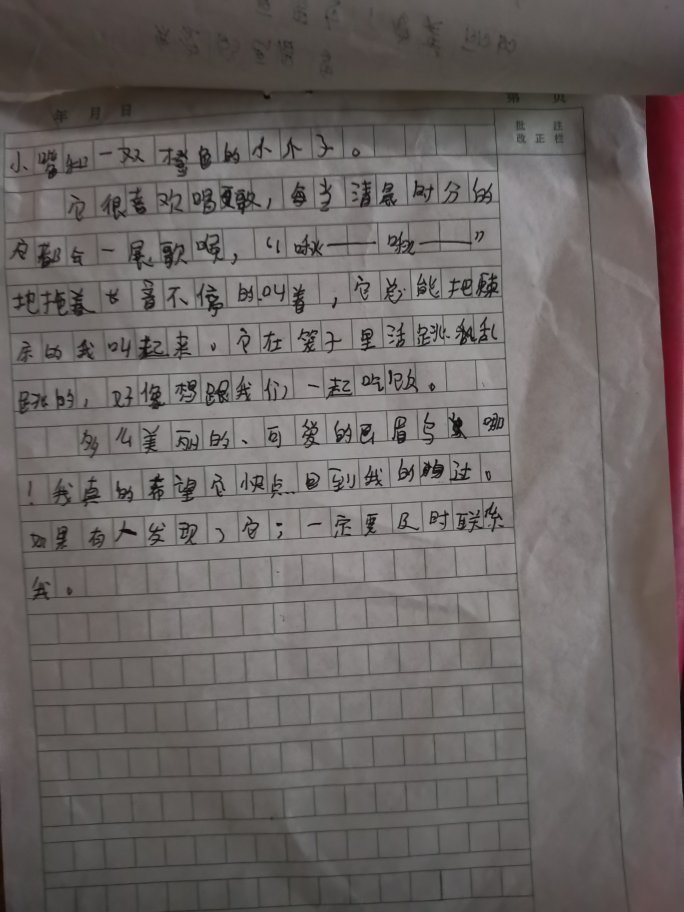 年 月 日
第 页
批 注
改 正 栏
小嘴和一双橙色的小爪子。
它很喜欢唱歌，每当清晨时分的
它都会一展歌喉，“啾——啾——”
地拖着长音不停的叫着，它总能把赖
床的我叫起来。它在笼子里活蹦乱
跳的，好像想跟我们一起吃饭。
多么美丽的、可爱的画眉鸟哪
！我真的希望它快点回到我的过。
如果有人发现了它；一定要及时联系
我。